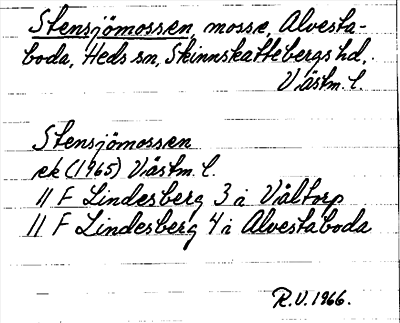 Stensjömossen, mosse, Alvesta-
boda, Heds sn, Skinnskattebergs hd,
Västm. l.
Stensjömossen
ek (1965) Västm. l.
11 F Lindesberg 3 i Våltorp
11 F Lindesberg 4 i Alvestaboda
R.V. 1966.